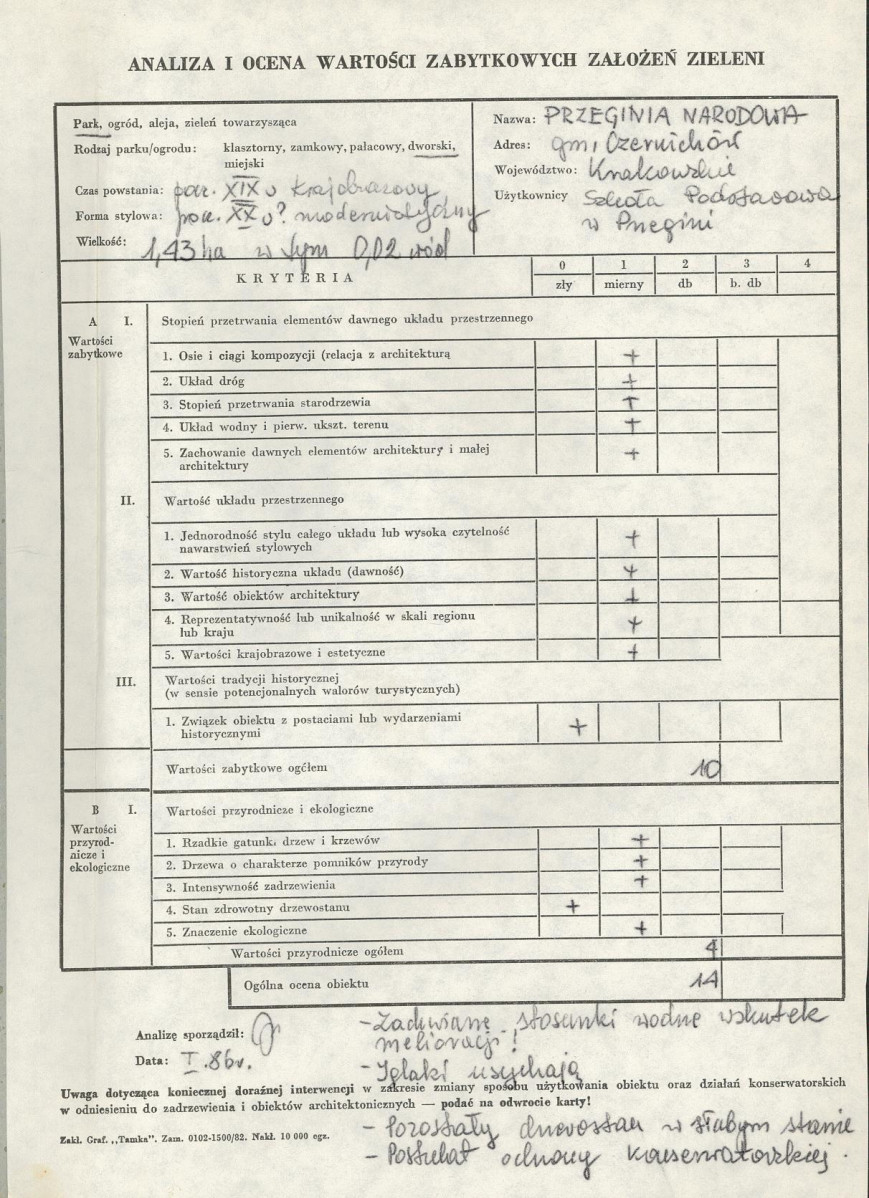 ANALIZA I OCENA WARTOŚCI ZABYTKOWYCH ZAŁOŻEŃ ZIELENI
Park, ogród, aleja, zieleń towarzysząca
Rodzaj parku/ogrodu: klasztorny, zamkowy, pałacowy, dworski,
miejski
Czas powstania: poł. XIX w krajobrazowy
Forma stylowa: pocz. XX w? modernistyczny
Wielkość: 1,43 ha w tym 0,02 wód
Nazwa: PRZEGINIA NARODOWA
Adres: gm. Czernichów
Województwo: Krakowskie
Użytkownicy Szkoła Podstawowa
w Przegini
KRYTERIA
0 1 2 3 4
zły mierny db b. db
A I. Stopień przetrwania elementów dawnego układu przestrzennego
Wartości
zabytkowe
1. Osie i ciągi kompozycji (relacja z architekturą +
2. Układ dróg +
3. Stopień przetrwania starodrzewia +
4. Układ wodny i pierw. ukszt. terenu +
5. Zachowanie dawnych elementów architektury i małej +
architektury
II. Wartość układu przestrzennego
1. Jednorodność stylu całego układu lub wysoka czytelność +
nawarstwień stylowych
2. Wartość historyczna układu (dawność) +
3. Wartość obiektów architektury +
4. Reprezentatywność lub unikalność w skali regionu +
lub kraju
5. Wartości krajobrazowe i estetyczne +
III. Wartości tradycji historycznej
(w sensie potencjonalnych walorów turystycznych)
1. Związek obiektu z postaciami lub wydarzeniami +
historycznymi
Wartości zabytkowe ogółem 10
B I. Wartości przyrodnicze i ekologiczne
Wartości
przyrod-
nicze i
ekologiczne
1. Rzadkie gatunki drzew i krzewów +
2. Drzewa o charakterze pomników przyrody +
3. Intensywność zadrzewienia +
4. Stan zdrowotny drzewostanu +
5. Znaczenie ekologiczne +
Wartości przyrodnicze ogółem 4
Ogólna ocena obiektu 14
Analizę sporządził:
Data: I.86r.
- Zachwiane stosunki wodne wskutek
melioracji!
- Iglaki usychają
Uwaga dotycząca koniecznej doraźnej interwencji w zakresie zmiany sposobu użytkowania obiektu oraz działań konserwatorskich
w odniesieniu do zadrzewienia i obiektów architektonicznych — podać na odwrocie karty!
Zakł. Graf. „Tamka". Zam. 0102-1500/82. Nakł. 10 000 egz.
- Pozostały drzewostan w słabym stanie
- Postulat ochrony konserwatorskiej.